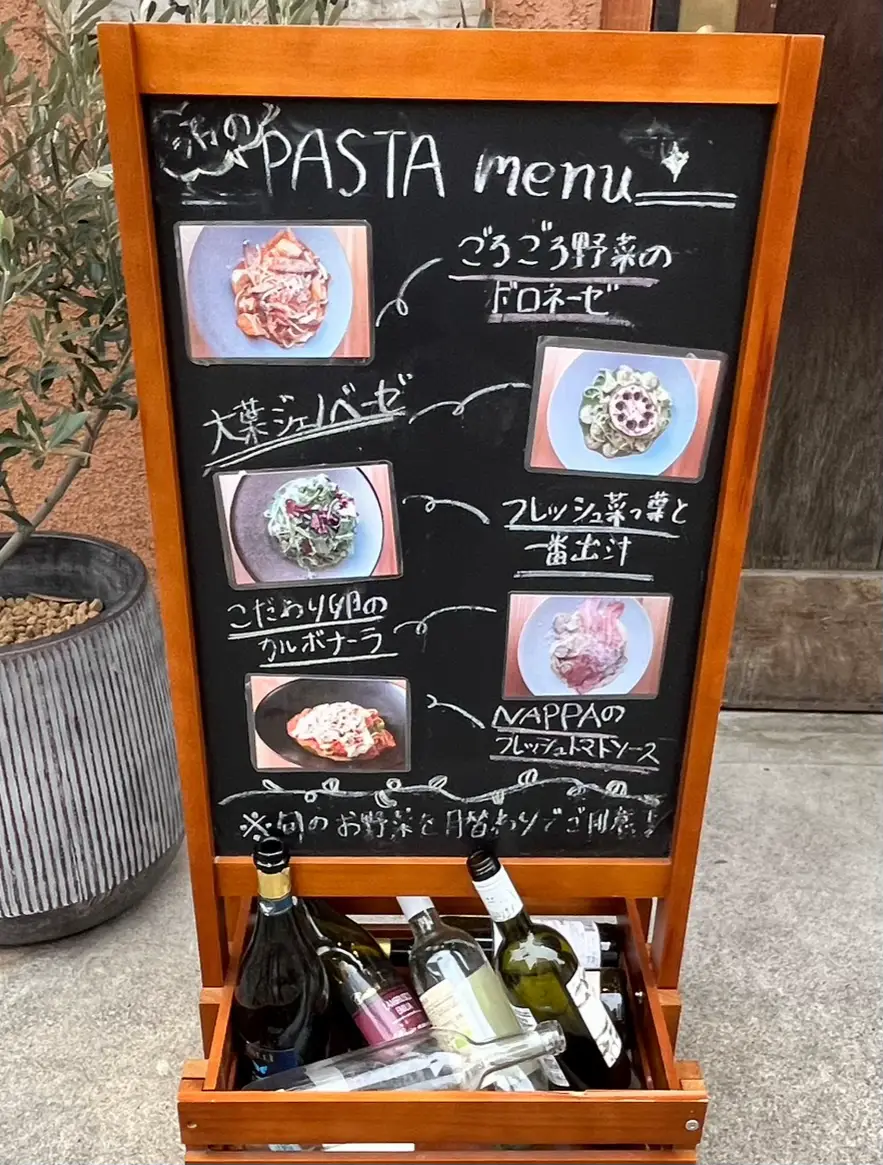 PASTA menu
ごろごろ野菜の
ボロネーゼ
大葉ジェノベーゼ
フレッシュ菜っ葉と
一番出汁
こだわり卵の
カルボナーラ
NAPPAの
フレッシュトマトソース
※旬のお野菜を月替わりでご用意!
LAMBRUSCO
EMILIA